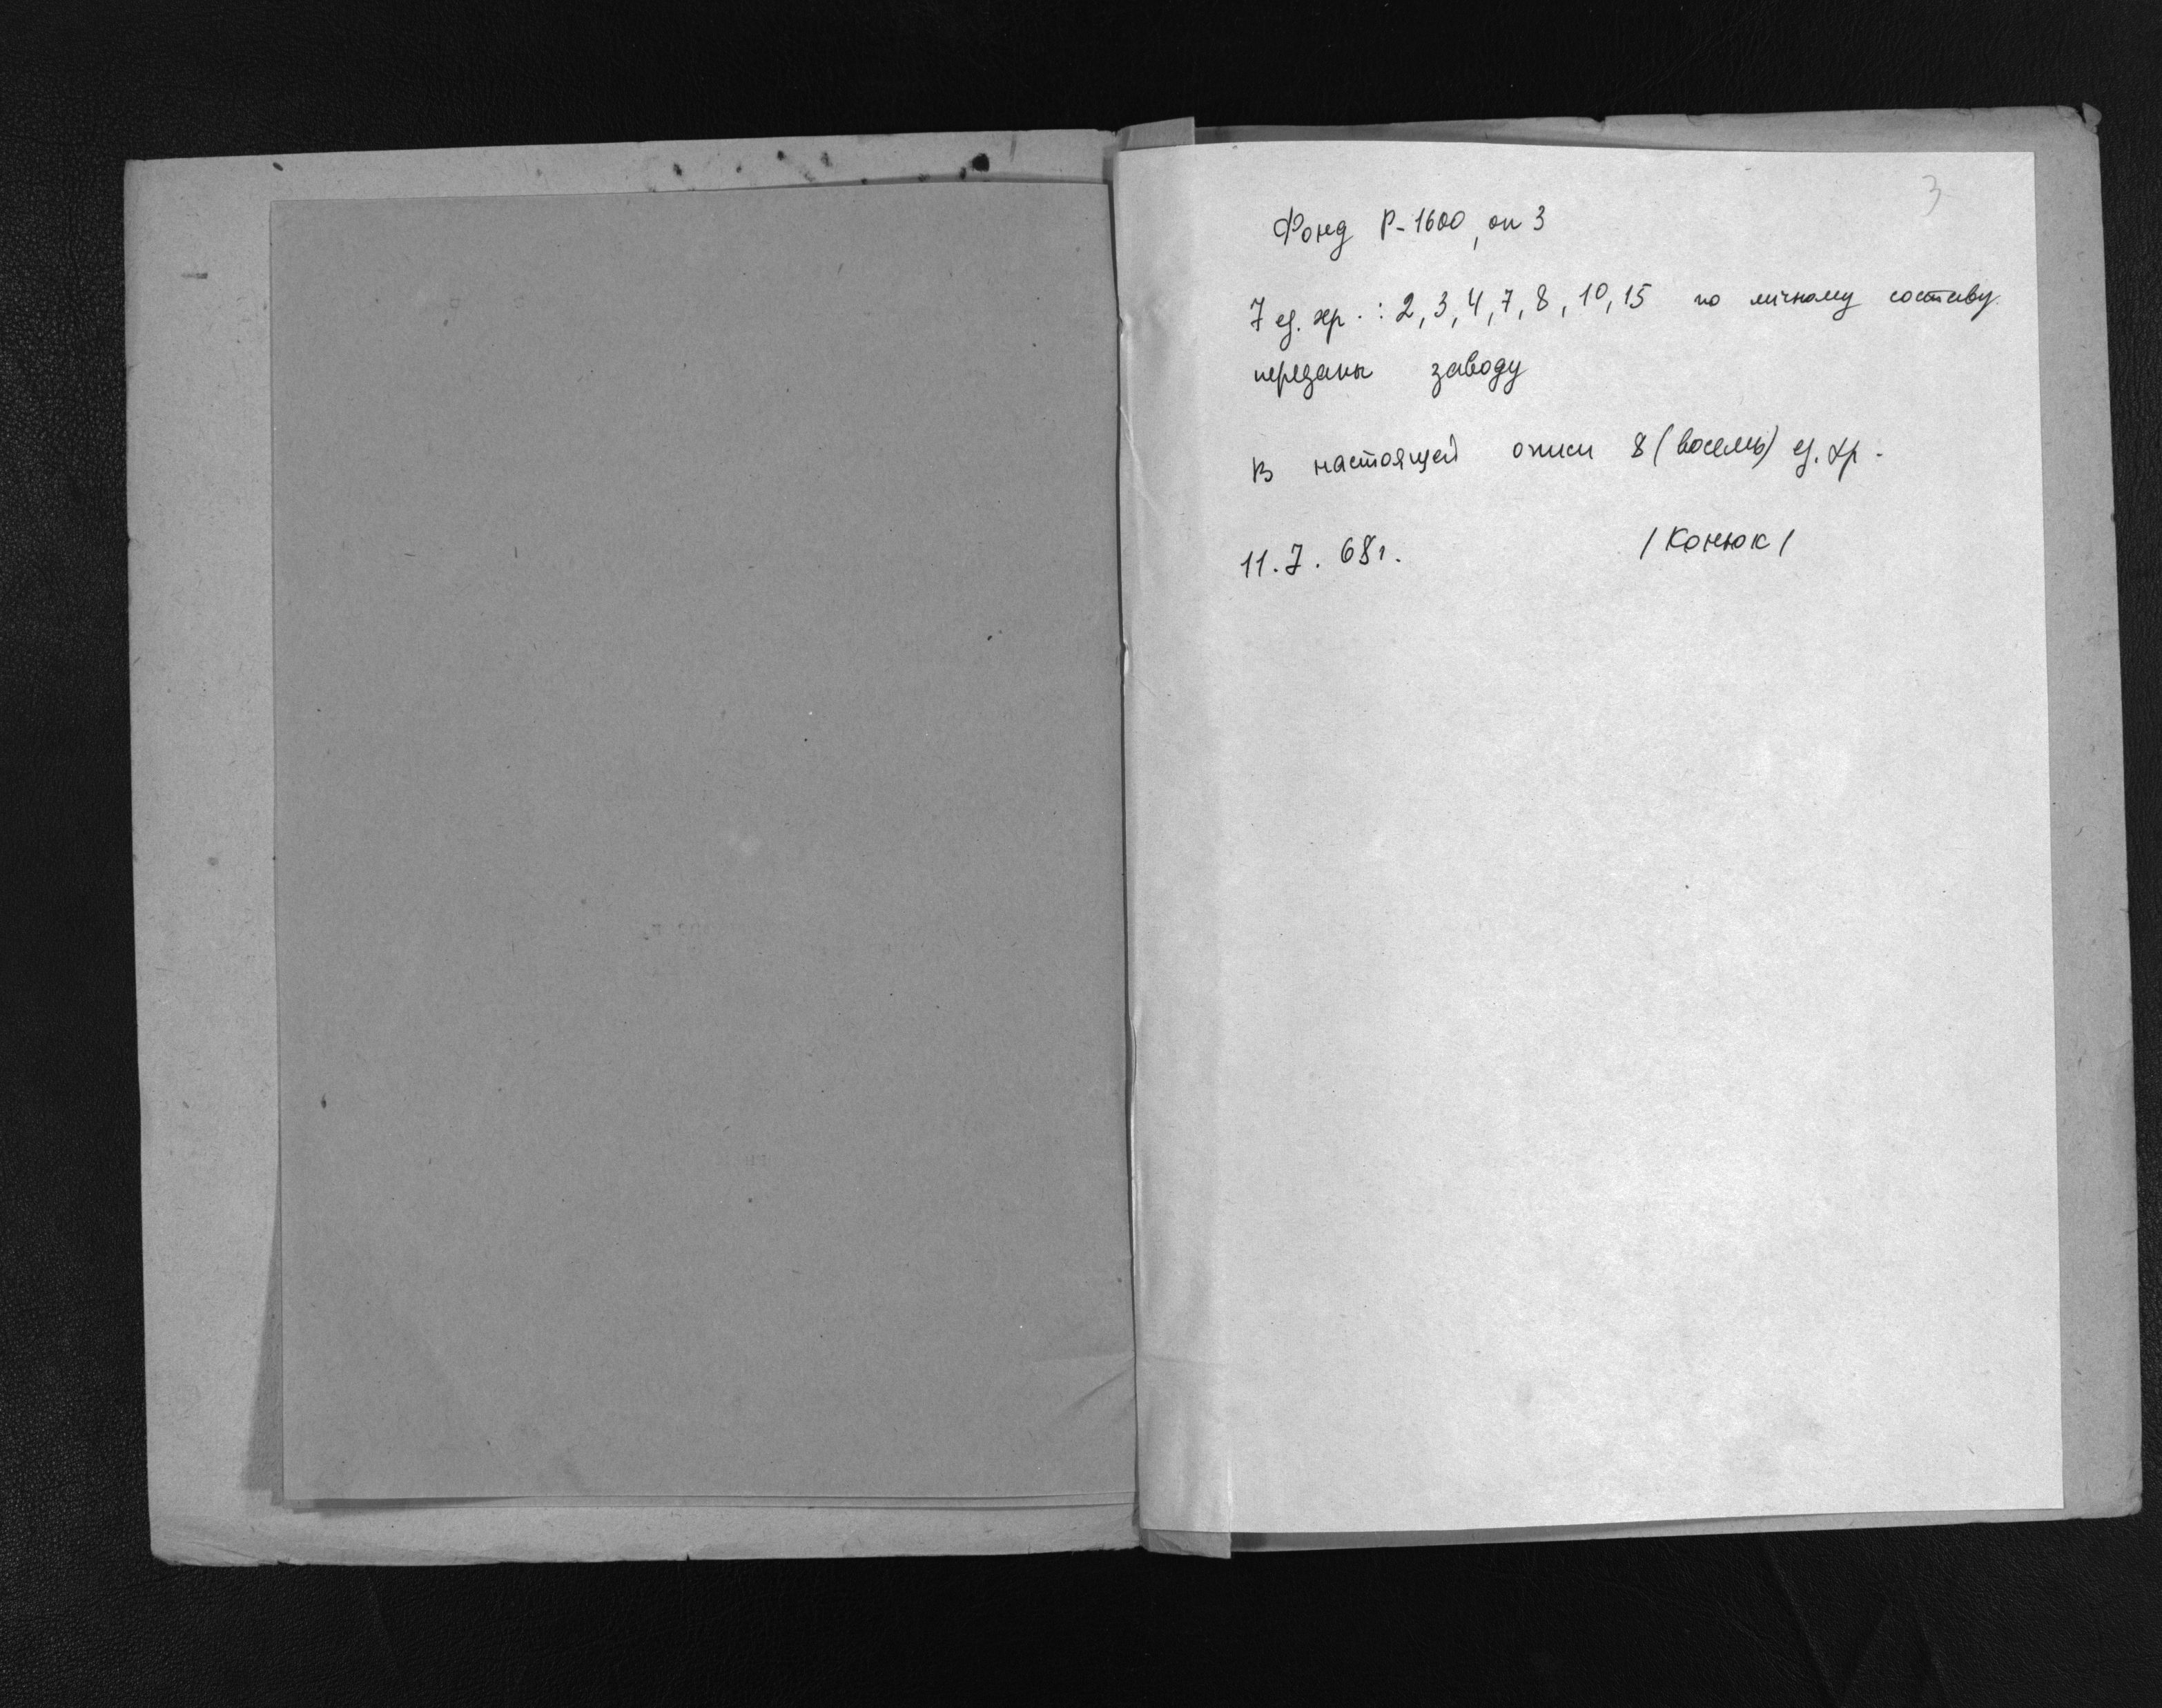 3
Фонд Р-1600, оп 3
7 ед. хр. : 2, 3, 4, 7, 8, 10, 15 по личному составу
переданы заводу
В настоящей описи 8 (восемь) ед. хр.
11.7. 68г. /Конюк/